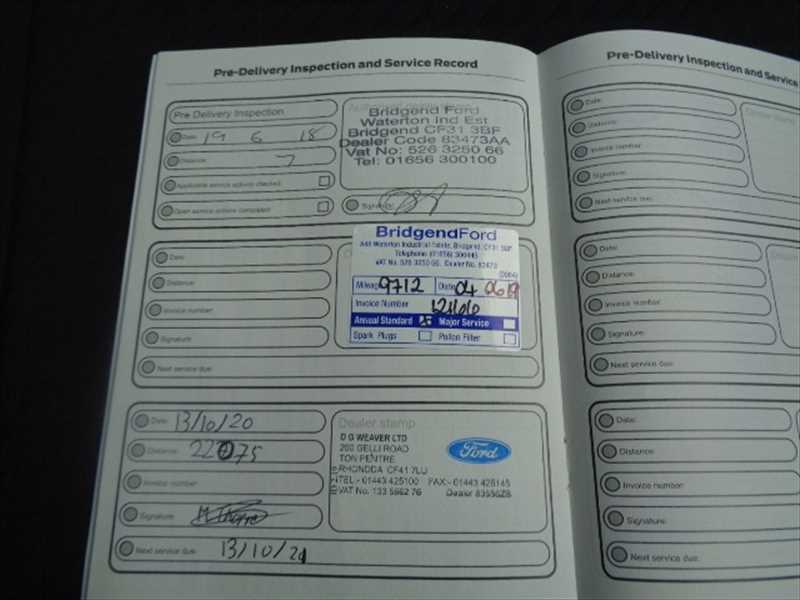 Pre-Delivery Inspection and Service Record
Pre Delivery Inspection
Date: 19 6 18
Distance: 7
Applicable service options checked:
Open service actions completed:
Bridgend Ford
Waterton Ind Est
Bridgend CF31 3BF
Dealer Code 83473AA
Vat No: 526 3250 66
Tel: 01656 300100
Signature:
Date:
Distance:
Invoice number:
Signature:
Next service due:
BridgendFord
Waterton Industrial Estate, Bridgend, CF31 3BF
VAT No. 526 3250 66 Dealer No. 83473
Mileage 9712 Date 04 06 19
Invoice Number
Annual Standard Major Service
Spark Plugs Pollen Filter
Date: 13/10/20
Distance: 22075
Invoice number:
Signature:
Next service due: 13/10/21
Dealer stamp
D G WEAVER LTD
GELLI ROAD
TON PENTRE
RHONDDA CF41 7LU
TEL:- 01443 425100 FAX:- 01443 428145
VAT No. 133 5662 76 Dealer 83556ZB
Ford
Pre-Delivery Inspection and Service
Date:
Distance:
Invoice number:
Signature:
Next service due:
Date:
Distance:
Invoice number:
Signature:
Next service due:
Date:
Distance:
Invoice number:
Signature:
Next service due: